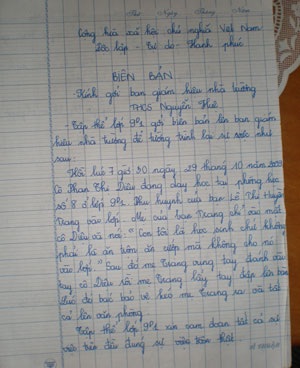 Thứ Ngày Tháng Năm
Cộng hoà xã hội chủ nghĩa Việt Nam
Độc lập - Tự do - Hạnh phúc
BIÊN BẢN
Kính gởi ban giám hiệu nhà trường
THCS Nguyễn Huệ
Tập thể lớp 9 gởi biên bản lên ban giám
hiệu nhà trường để tường trình lại sự việc như
sau:
Hồi lúc 7 giờ 30 ngày 29 tháng 10 năm
cô Phan Thị Diệu đang dạy học tại phòng học
số 8 ở lớp 9. Phụ huynh của bạn Lê Thị Thuỳ
Trang vào lớp. Mẹ của bạn Trang chỉ vào mặt
cô Diệu và nói: "Con tôi là học sinh chứ không
phải là ăn trộm ăn cướp mà không cho nó
vào lớp." Sau đó mẹ Trang vung tay đánh vào
tay cô Diệu rồi mẹ Trang lấy tay đập lên bàn
Lúc đó bác bảo vệ kéo mẹ Trang ra và tất
cả lên văn phòng.
Tập thể lớp 9 xin cam đoan tất cả sự
việc trên đều đúng sự thật.